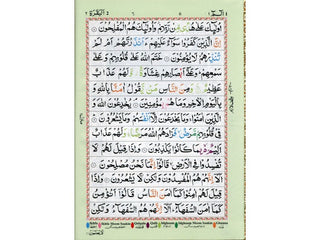 البقرة ٢
الٓمّٓ ١
اُولٰٓئِكَ عَلٰى هُدًى مِّنْ رَّبِّهِمْ وَاُولٰٓئِكَ هُمُ الْمُفْلِحُوْنَ
اِنَّ الَّذِيْنَ كَفَرُوْا سَوَآءٌ عَلَيْهِمْ ءَاَنْذَرْتَهُمْ اَمْ لَمْ
تُنْذِرْهُمْ لَا يُؤْمِنُوْنَ خَتَمَ اللّٰهُ عَلٰى قُلُوْبِهِمْ وَعَلٰى
سَمْعِهِمْ وَعَلٰٓى اَبْصَارِهِمْ غِشَاوَةٌ وَّلَهُمْ عَذَابٌ
عَظِيْمٌ وَمِنَ النَّاسِ مَنْ يَّقُوْلُ اٰمَنَّا بِاللّٰهِ وَ
بِالْيَوْمِ الْاٰخِرِ وَمَا هُمْ بِمُؤْمِنِيْنَ يُخٰدِعُوْنَ اللّٰهَ وَ
الَّذِيْنَ اٰمَنُوْا وَمَا يَخْدَعُوْنَ اِلَّآ اَنْفُسَهُمْ وَمَا يَشْعُرُوْنَ
فِيْ قُلُوْبِهِمْ مَّرَضٌ فَزَادَهُمُ اللّٰهُ مَرَضًا وَلَهُمْ عَذَابٌ
اَلِيْمٌ بِمَا كَانُوْا يَكْذِبُوْنَ وَاِذَا قِيْلَ لَهُمْ لَا
تُفْسِدُوْا فِي الْاَرْضِ قَالُوْٓا اِنَّمَا نَحْنُ مُصْلِحُوْنَ
اَلَآ اِنَّهُمْ هُمُ الْمُفْسِدُوْنَ وَلٰكِنْ لَّا يَشْعُرُوْنَ وَاِذَا
قِيْلَ لَهُمْ اٰمِنُوْا كَمَآ اٰمَنَ النَّاسُ قَالُوْٓا اَنُؤْمِنُ
كَمَآ اٰمَنَ السُّفَهَآءُ اَلَآ اِنَّهُمْ هُمُ السُّفَهَآءُ وَلٰكِنْ